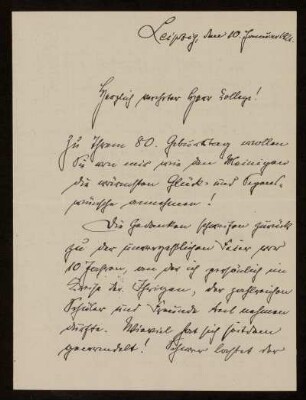 Leipzig, den 10 Januar
Herzlich verehrter Herr Kollege!
Zu Ihrem 80. Geburtstag wollen
Sie von mir wie den Meinigen
die wärmsten Glück- und Segens-
wünsche annehmen!
Die Gedanken schweifen zurück
zu der unvergeßlichen Feier vor
10 Jahren, an der ich persönlich im
Kreise der Ihrigen, der zahlreichen
Schüler und Freunde teil nehmen
durfte. Wieviel hat sich seitdem
gewandelt! Schwer lastet der